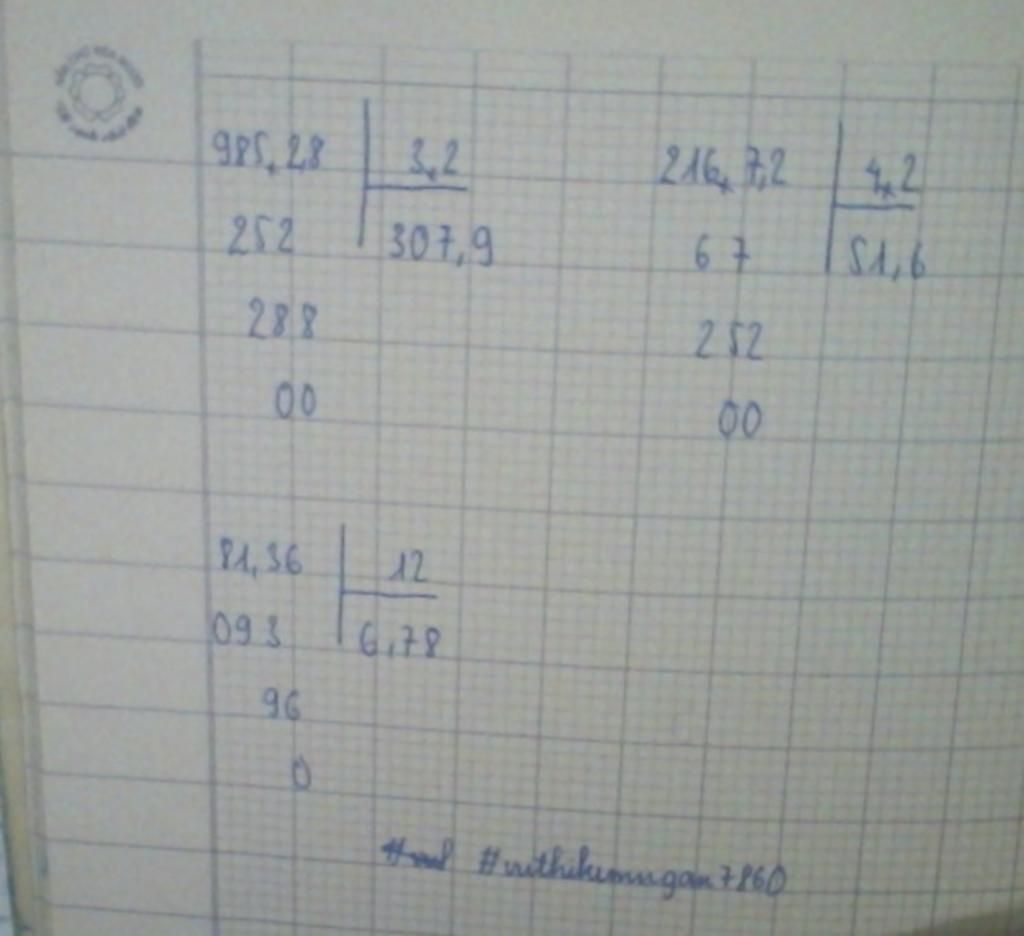 985,28 3,2
252 307,9
288
00
216,7,2 4,2
67 51,6
252
00
81,36 12
093 6,78
96
0